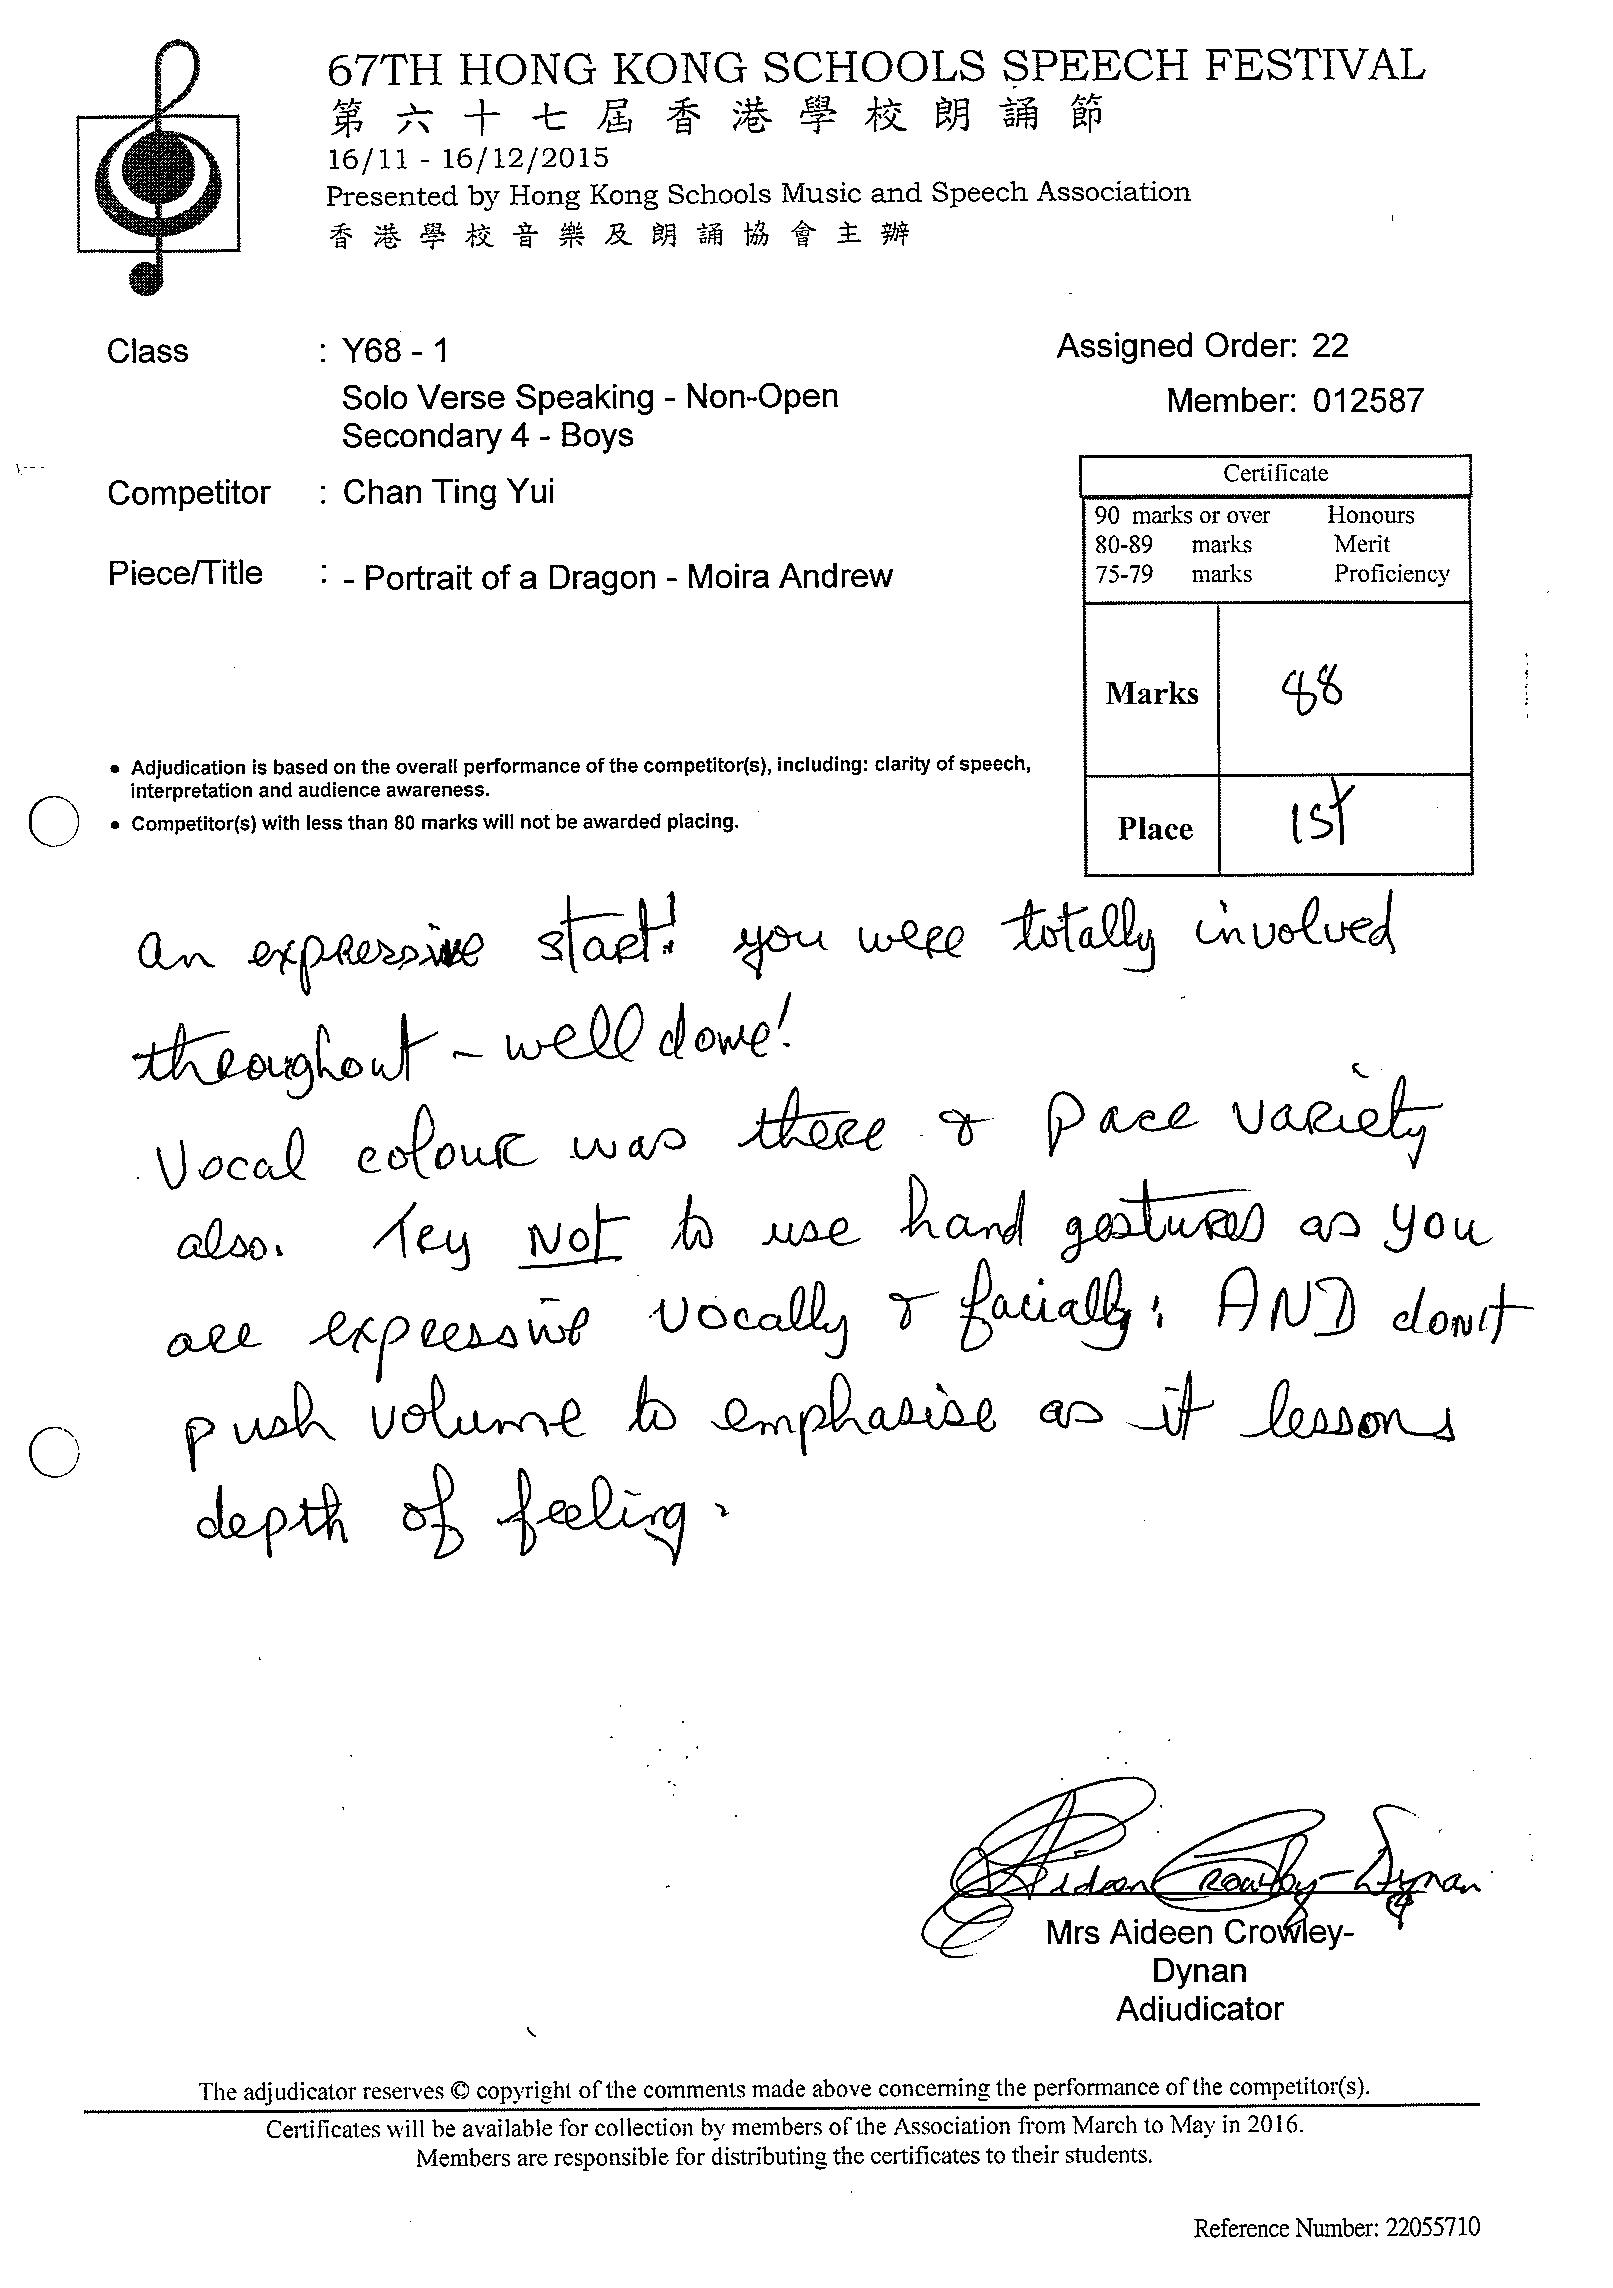 67TH HONG KONG SCHOOLS SPEECH FESTIVAL
第六十七屆香港學校朗誦節
16/11 - 16/12/2015
Presented by Hong Kong Schools Music and Speech Association
香港學校音樂及朗誦協會主辦
Class : Y68 - 1
Assigned Order: 22
Solo Verse Speaking - Non-Open
Member: 012587
Secondary 4 - Boys
Competitor : Chan Ting Yui
Piece/Title : - Portrait of a Dragon - Moira Andrew
Certificate
90 marks or over Honours
80-89 marks Merit
75-79 marks Proficiency
Marks 88
Place 1st
• Adjudication is based on the overall performance of the competitor(s), including: clarity of speech,
interpretation and audience awareness.
• Competitor(s) with less than 80 marks will not be awarded placing.
An expressive start! you were totally involved
throughout - well done!
Vocal colour was there & pace variety
also. Try NOT to use hand gestures as you
are expressive vocally & facially; AND don't
push volume to emphasise as it lessons
depth of feeling.
Aideen Crowley-Dynan
Mrs Aideen Crowley-
Dynan
Adjudicator
The adjudicator reserves © copyright of the comments made above concerning the performance of the competitor(s).
Certificates will be available for collection by members of the Association from March to May in 2016.
Members are responsible for distributing the certificates to their students.
Reference Number: 22055710